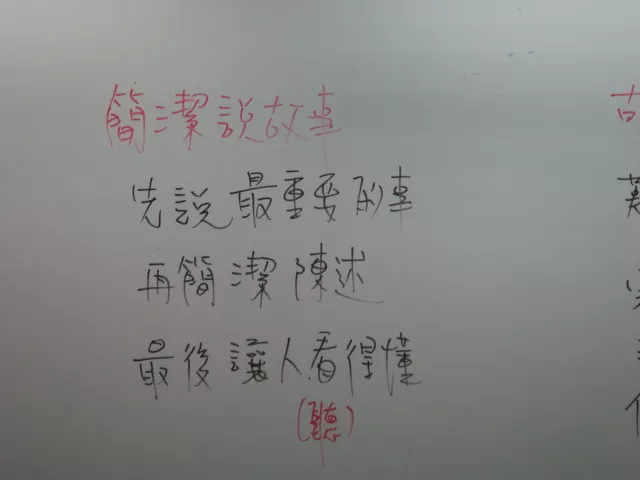 簡潔說故事
先說最重要的事
再簡潔陳述
最後讓人看得懂
(聽)